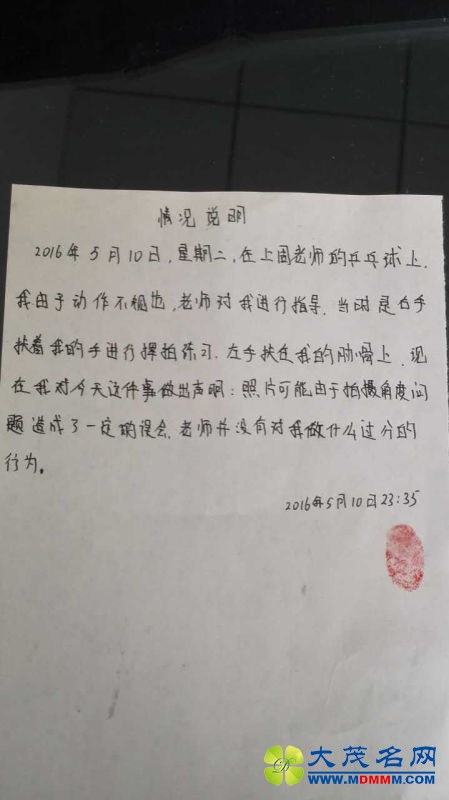 情况说明
2016年5月10日,星期二,在上周老师的乒乓球上,
我由于动作不规范,老师对我进行指导,当时是右手
扶着我的手进行挥拍练习,左手扶在我的肋骨上,现
在我对今天这件事做出声明:照片可能由于拍摄角度问
题造成了一定的误会,老师并没有对我做什么过分的
行为。
2016年5月10日23:35
大茂名网
WWW.MDMMM.COM